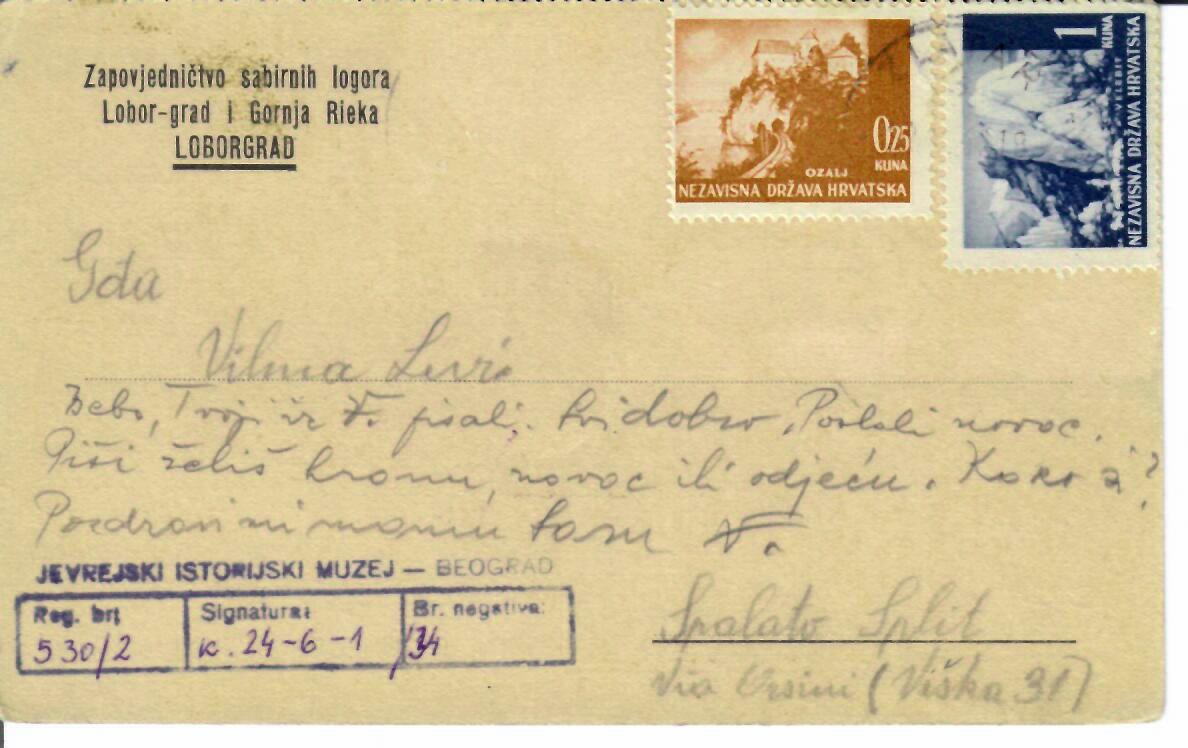 Zapovjedničtvo sabirnih logora
Lobor-grad i Gornja Rieka
LOBORGRAD
OZALJ
0.25
KUNA
NEZAVISNA DRŽAVA HRVATSKA
1
KUNA
VELEBIT
NEZAVISNA DRŽAVA HRVATSKA
Gđa
Vilma
Tvoji iz pisali. Svi dobro. Poslali novac.
Piši želiš hranu, novac ili odjeću. Kako
Pozdravi mi mamu
JEVREJSKI ISTORIJSKI MUZEJ — BEOGRAD
Reg. br:
Signatura:
Br. negativa:
530/2
k. 24-6-1/
34
Spalato Split
Via Orsini (Viška 31)